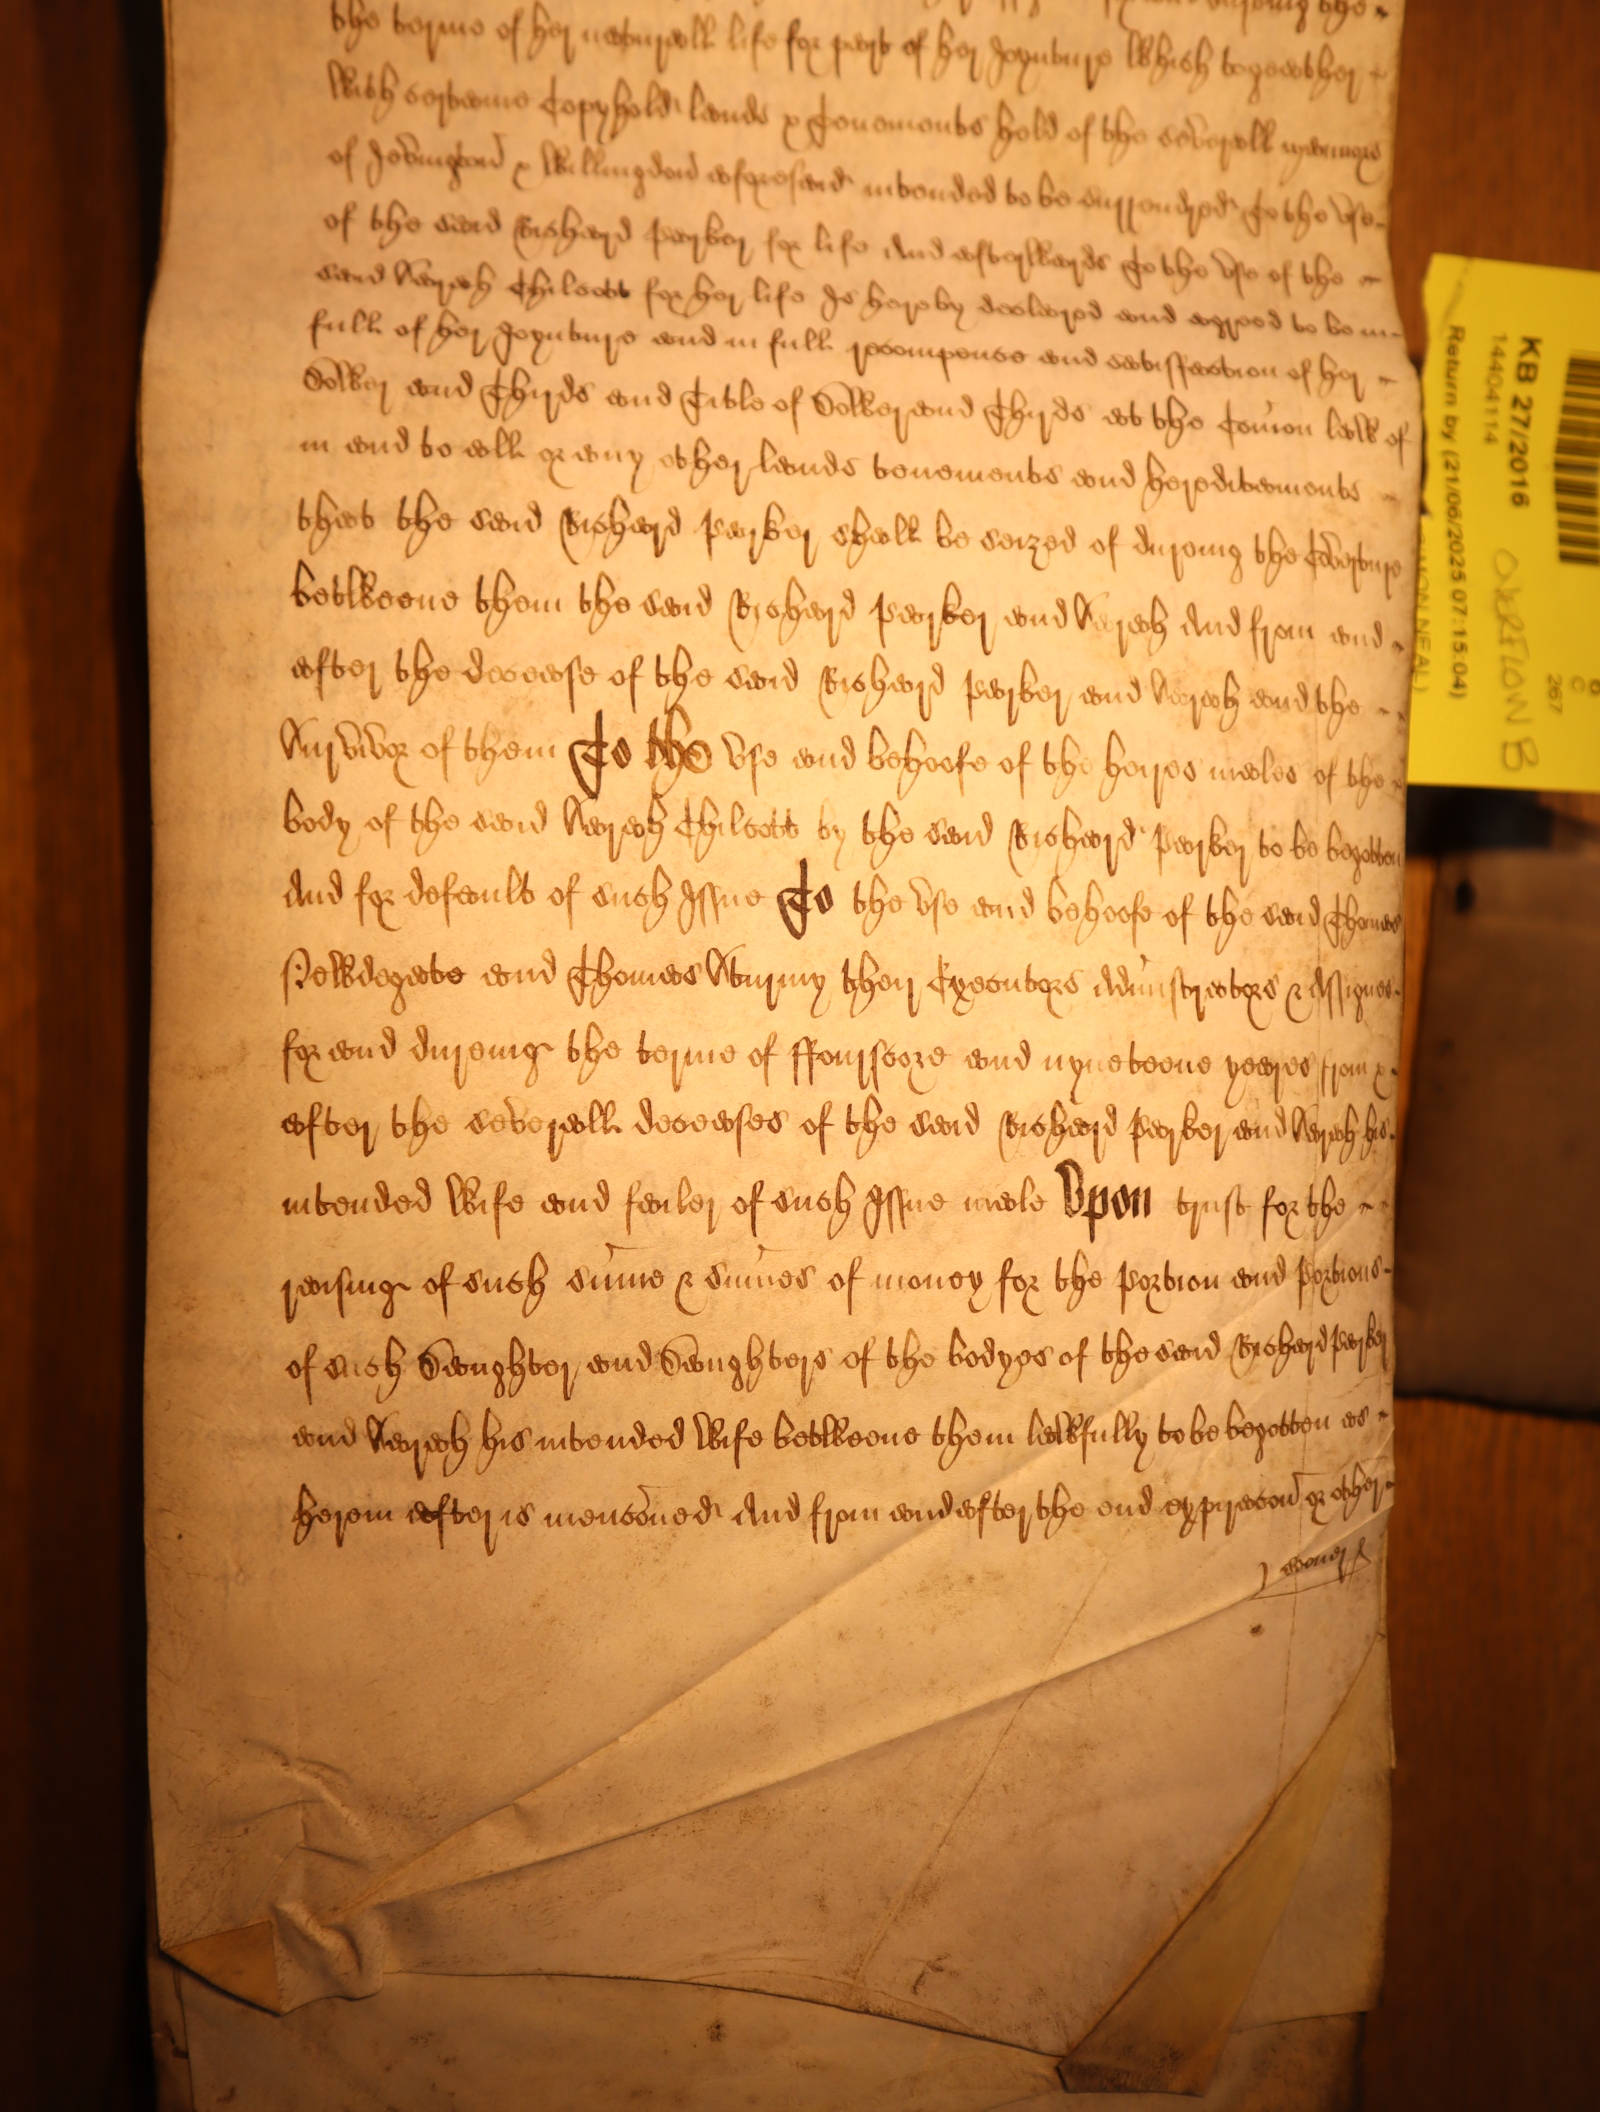 dureing the
the terme of her naturall life for part of her Joynture Which togeather
With certaine Copyhold lands & Tenements held of the severall mannors
of Jevington & Willingdon aforesaid intended to be surrendred To the Use
of the said Richard Parker for life And afterwards To the Use of the
said Sarah Chilcott for her life Is hereby declared and agreed to be in
full of her Joynture and in full recompence and satisfaction of her
Dower and Thyrds and Title of Dower and Thyrds at the Com̄on law of
in and to all or any other lands tenements and hereditaments
that the said Richard Parker shall be seized of dureing the Coverture
betweene them the said Richard Parker and Sarah And from and
after the decease of the said Richard Parker and Sarah and the
Survivor of them To the Use and behoofe of the heires males of the
body of the said Sarah Chilcott by the said Richard Parker to be begotten
And for default of such Issue To the Use and behoofe of the said Thomas
Newdegate and Thomas Sturmy their Executors Adm̄istrators & Assignes
for and dureing the terme of ffourscore and nyneteene yeares from &
after the severall deceases of the said Richard Parker and Sarah his
intended Wife and failer of such Issue male Upon trust for the
raising of such sum̄e & sum̄es of money for the portion and portions
of such Daughter and Daughters of the bodyes of the said Richard Parker
and Sarah his intended Wife betweene them lawfully to be begotten as
herein after is menc̄oned And from and after the end expirac̄on or other
KB 27/2016
14404114
Return by (21/06/2025 07:15:04)
SIMON NEAL)
OVERFLOW B
267